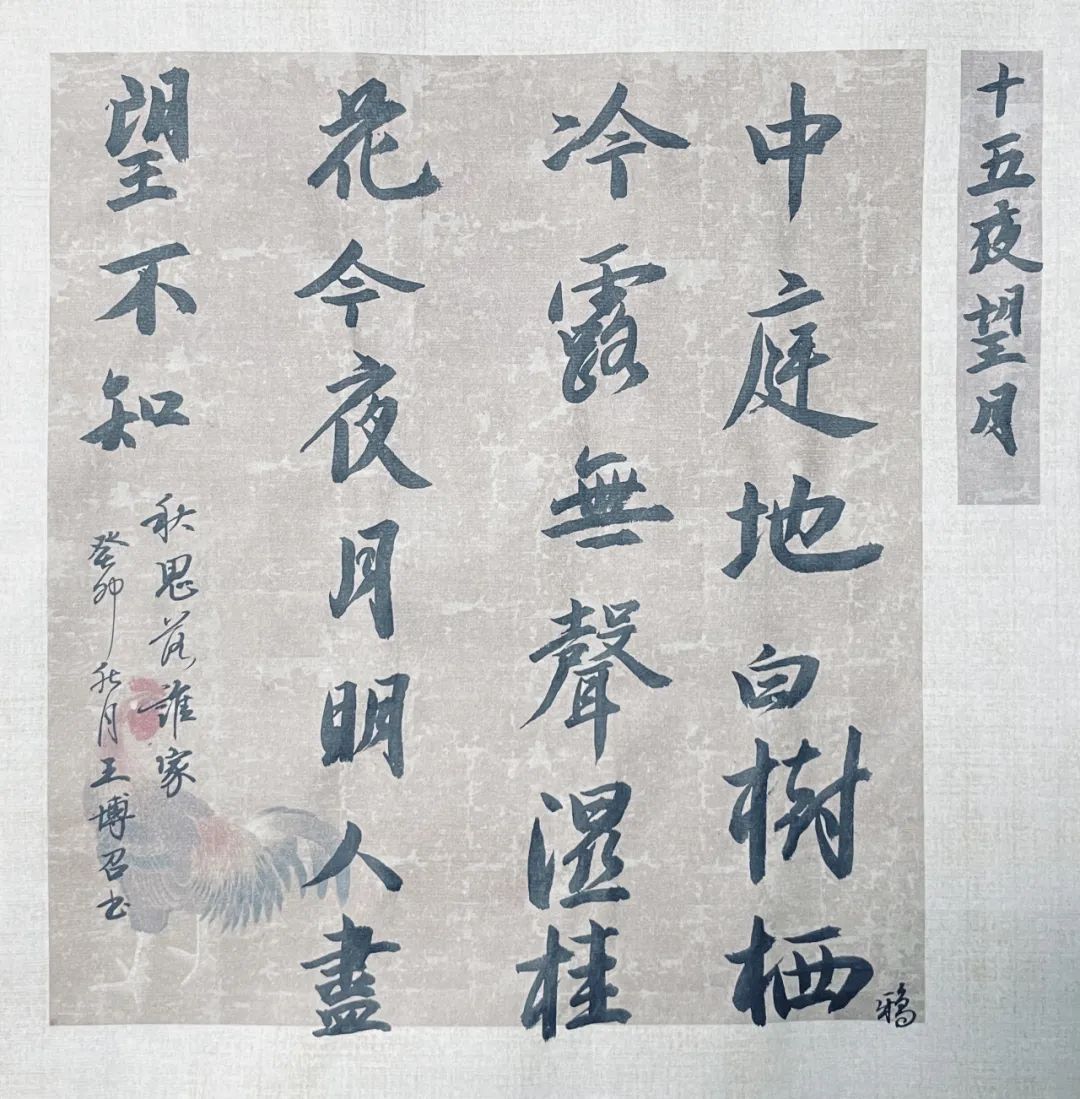 十五夜望月
中庭地白樹栖鴉
冷露無聲濕桂
花今夜月明人盡
望不知
秋思落誰家
癸卯秋月王博召书